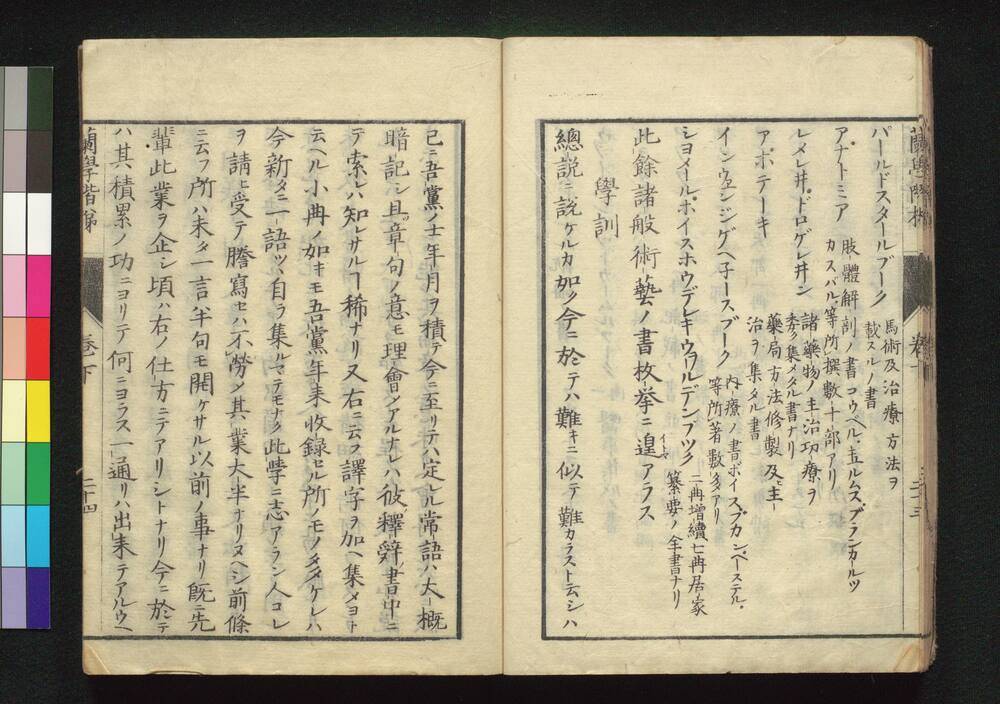 蘭學階梯
卷下
二十三
パールドスタールブーク
馬術及治療方法ヲ
載スルノ書
アナトミア
肢體解剖ノ書コウベル、
カスパル等所撰數十部アリ
レメレ井、ドロゲレ井ン
諸藥物ノ主治功療ヲ
委ク集メタル書ナリ
アポテーキ
藥局方法修製及ヒ主
治ヲ集タル書
インウェンジンゲヘ子ースブーク
内療ノ書ボイスブカンペーステル
等所著數多アリ
シヨメールホイスホウデレキウヲルデンブック
二冊增續七冊居家
纂要ノ全書ナリ
此餘諸般術藝ノ書枚擧ニ遑アラス
學訓
總説ニ説ケルカ如ク今ニ於テハ難キニ似テ難カラスト云シハ
已ニ吾黨ノ士年月ヲ積テ今ニ至リテハ定レル常語ハ大概
暗記シ且章句ノ意モ理會シアルナレハ彼釋辭書中ニ
テ索レハ知レサルヿ稀ナリ又右ニ云フ譯字ヲ加ヘ集メヨト
云ヘル小冊ノ如キモ吾黨年来收録セル所ノモノタケレハ
今新タニ一語ツヽ自ラ集ルマテモナク此學ニ志アラン人コレ
ヲ請ヒ受テ謄寫セハ不勞〆其業大半ナリヌヘシ前條
ニ云フ所ハ未タ一言半句モ開ケサル以前ノ事ナリ既ニ先
輩此業ヲ企シ頃ハ右ノ仕方ニテアリシトナリ今ニ於テ
ハ其積累ノ功ニヨリテ何ニヨラス一通リハ出来テアルウヘ
蘭學階梯
卷下
二十四